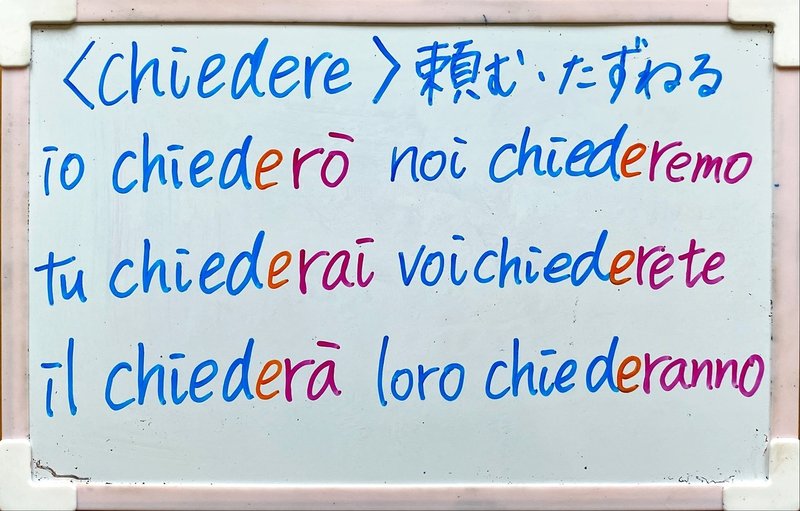 〈chiedere〉頼む・たずねる
io chiederò noi chiederemo
tu chiederai voi chiederete
il chiederà loro chiederanno